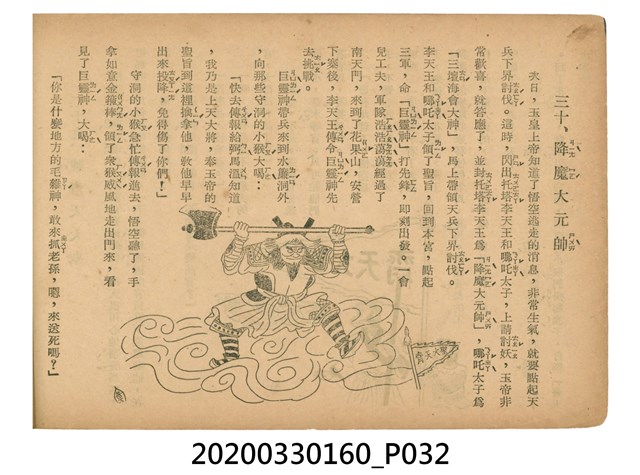 三十、降魔大元帥
次日，玉皇上帝知道了悟空逃走的消息，非常生氣，就要點起天
兵下界討伐。這時，閃出托塔李天王和哪吒太子，上請討妖，玉帝非
常歡喜，就答應了，並封托塔李天王爲「降魔大元帥」，哪吒太子爲
「三壇海會大神」，馬上帶領天兵下界討伐。
李天王和哪吒太子領了聖旨，回到本宮，點起
三軍，命「巨靈神」打先鋒，即刻出發。一會
兒工夫，軍隊浩浩蕩蕩經過了
南天門，來到了花果山，安營
下寨後，李天王傳令巨靈神先
去挑戰。
巨靈神帶兵來到水簾洞外
，向那些守洞的小猴大喝：
「快去傳報給弼馬溫知道
，我乃是上天大將，奉玉帝的
聖旨到這裡擒拿他，敎他早早
出來投降，免得傷了你們！」
守洞的小猴急忙傳報進去，悟空聽了，手
拿如意金箍棒，領了衆猴威風地走出門來，看
見了巨靈神，大喝：
「你是什麽地方的毛神，敢來抓老孫，嗯，來送死嗎？」
齊天大聖
20200330160_P032